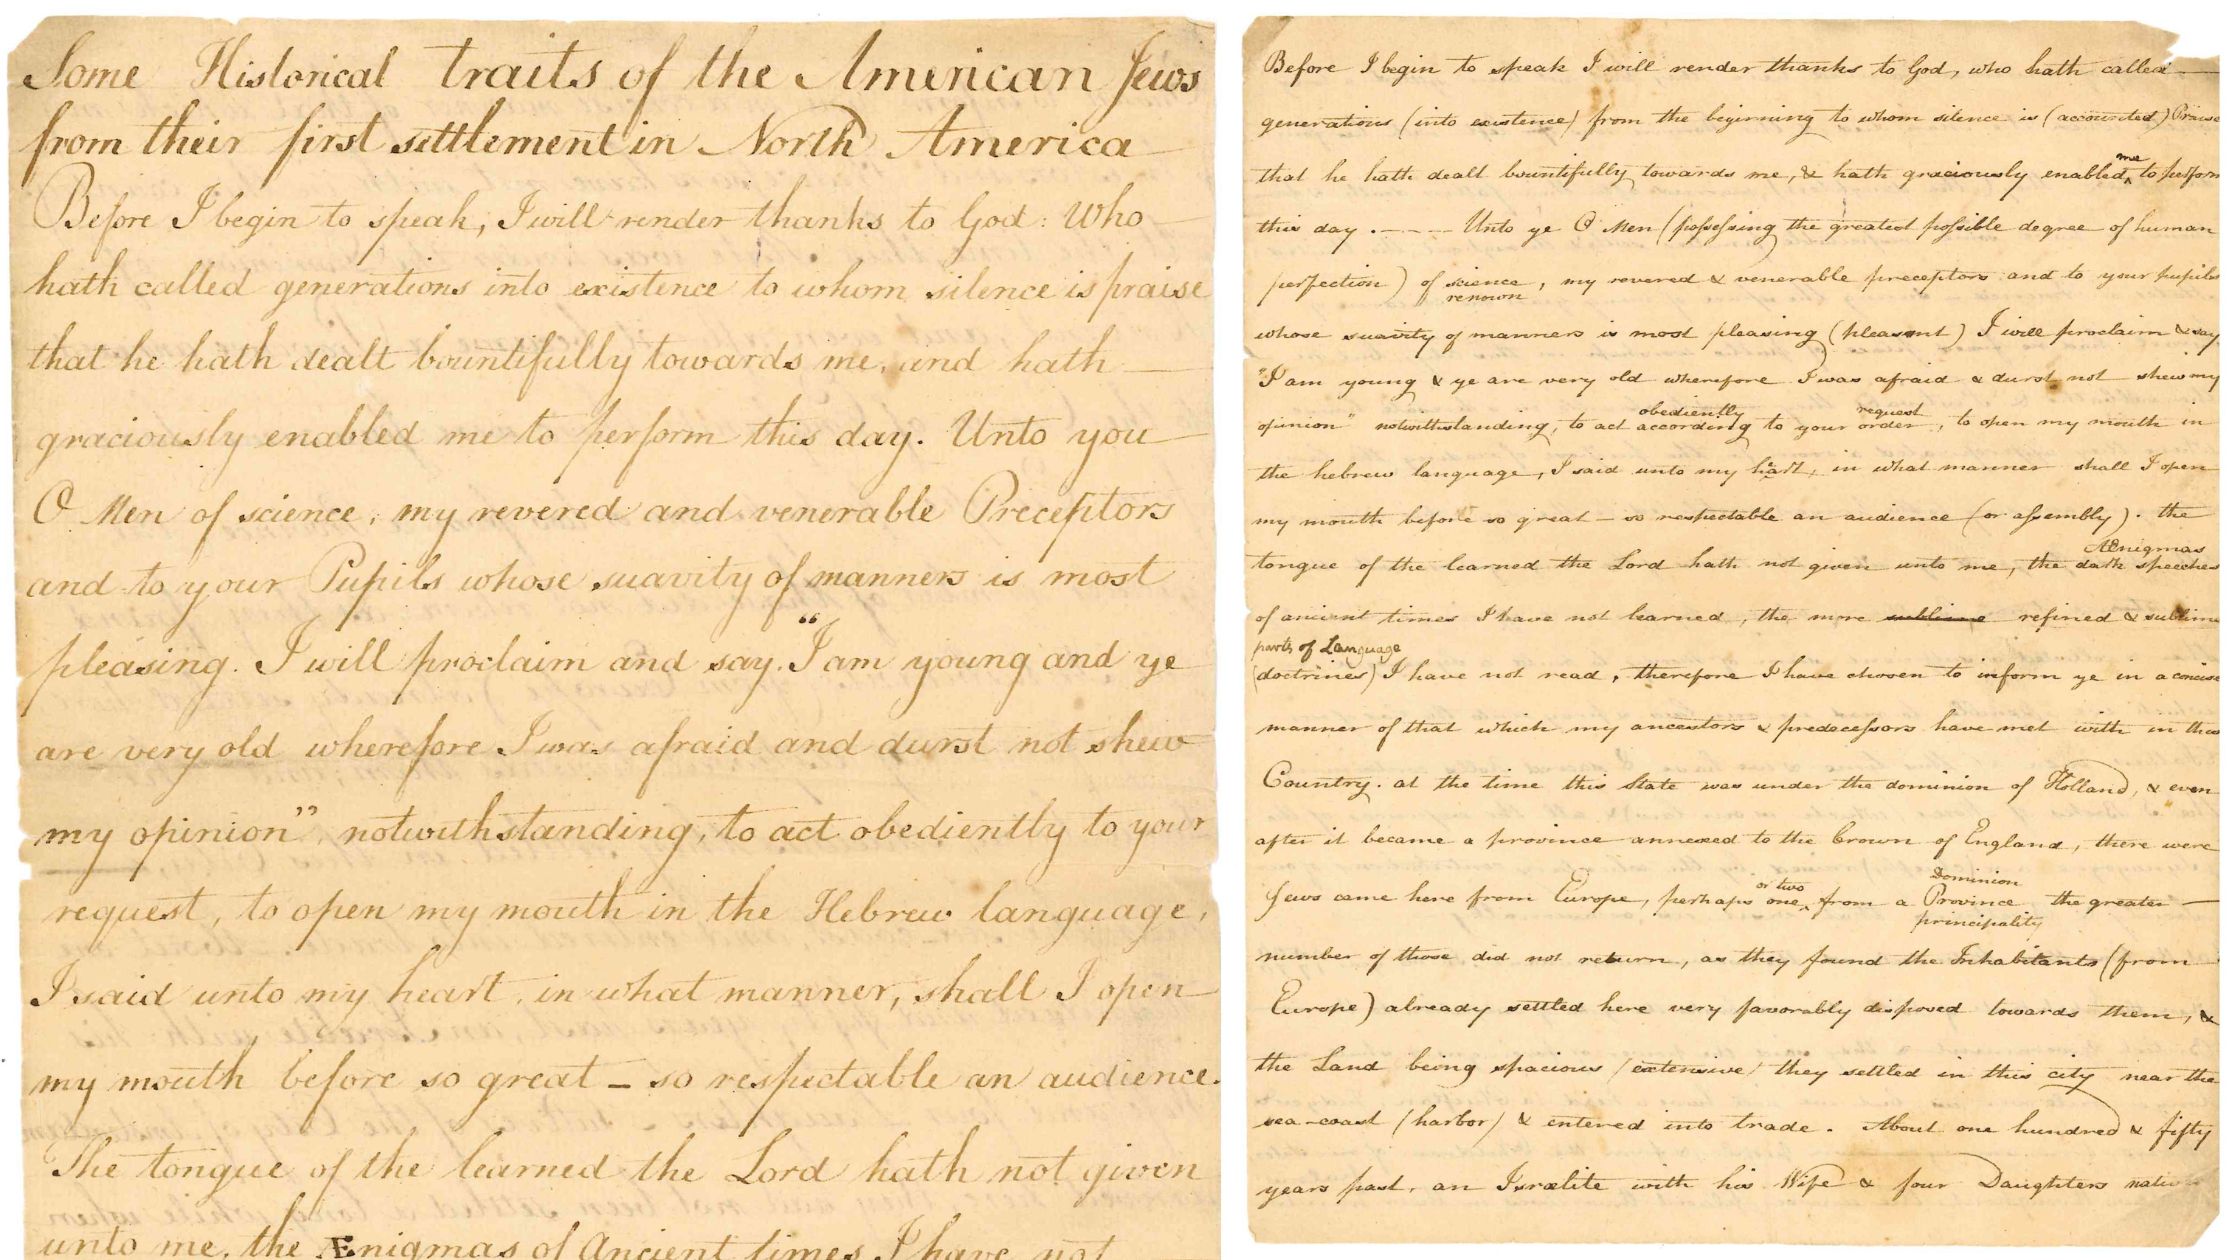 Some Historical traits of the American Jews
from their first settlement in North America
Before I begin to speak, I will render thanks to God: Who
hath called generations into existence to whom silence is praise
that he hath dealt bountifully towards me, and hath
graciously enabled me to perform this day. Unto you
O Men of science, my revered and venerable Preceptors
and to your Pupils whose suavity of manners is most
pleasing. I will proclaim and say. "I am young and ye
are very old wherefore I was afraid and durst not shew
my opinion", notwithstanding, to act obediently to your
request, to open my mouth in the Hebrew language,
I said unto my heart, in what manner, shall I open
my mouth before so great – so respectable an audience.
The tongue of the learned the Lord hath not given
unto me, the Ænigmas of Ancient times I have not
Before I begin to speak I will render thanks to God, who hath called
generations (into existence) from the beginning to whom silence is (accounted) Praise
me
that he hath dealt bountifully towards me, & hath graciously enabled ‸ to perform
this day . – – – Unto ye O Men (possessing the greatest possible degree of human
perfection) of science, my revered & venerable preceptors and to your pupils
renown
whose suavity of manners is most pleasing (pleasant) I will proclaim & say
"I am young & ye are very old wherefore I was afraid & durst not shew my
obediently request
opinion" notwithstanding, to act according to your order, to open my mouth in
the hebrew language, I said unto my heart, in what manner shall I open
my mouth before so great – so respectable an audience (or assembly). the
Ænigmas
tongue of the learned the Lord hath not given unto me, the dark speeches
of ancient times I have not learned, the more sublime refined & sublime
parts of Language
(doctrines) I have not read, therefore I have chosen to inform ye in a concise
manner of that which my ancestors & predecessors have met with in this
Country. at the time this State was under the dominion of Holland, & even
after it became a province annexed to the Crown of England, there were
or two Dominion
Jews came here from Europe, perhaps one ‸ from a Province the greater
principality
number of those did not return, as they found the Inhabitants (from
Europe) already settled here very favorably disposed towards them, &
the Land being spacious (extensive) they settled in this city near the
sea-coast (harbor) & entered into trade. About one hundred & fifty
years past, an Israelite with his Wife & four Daughters